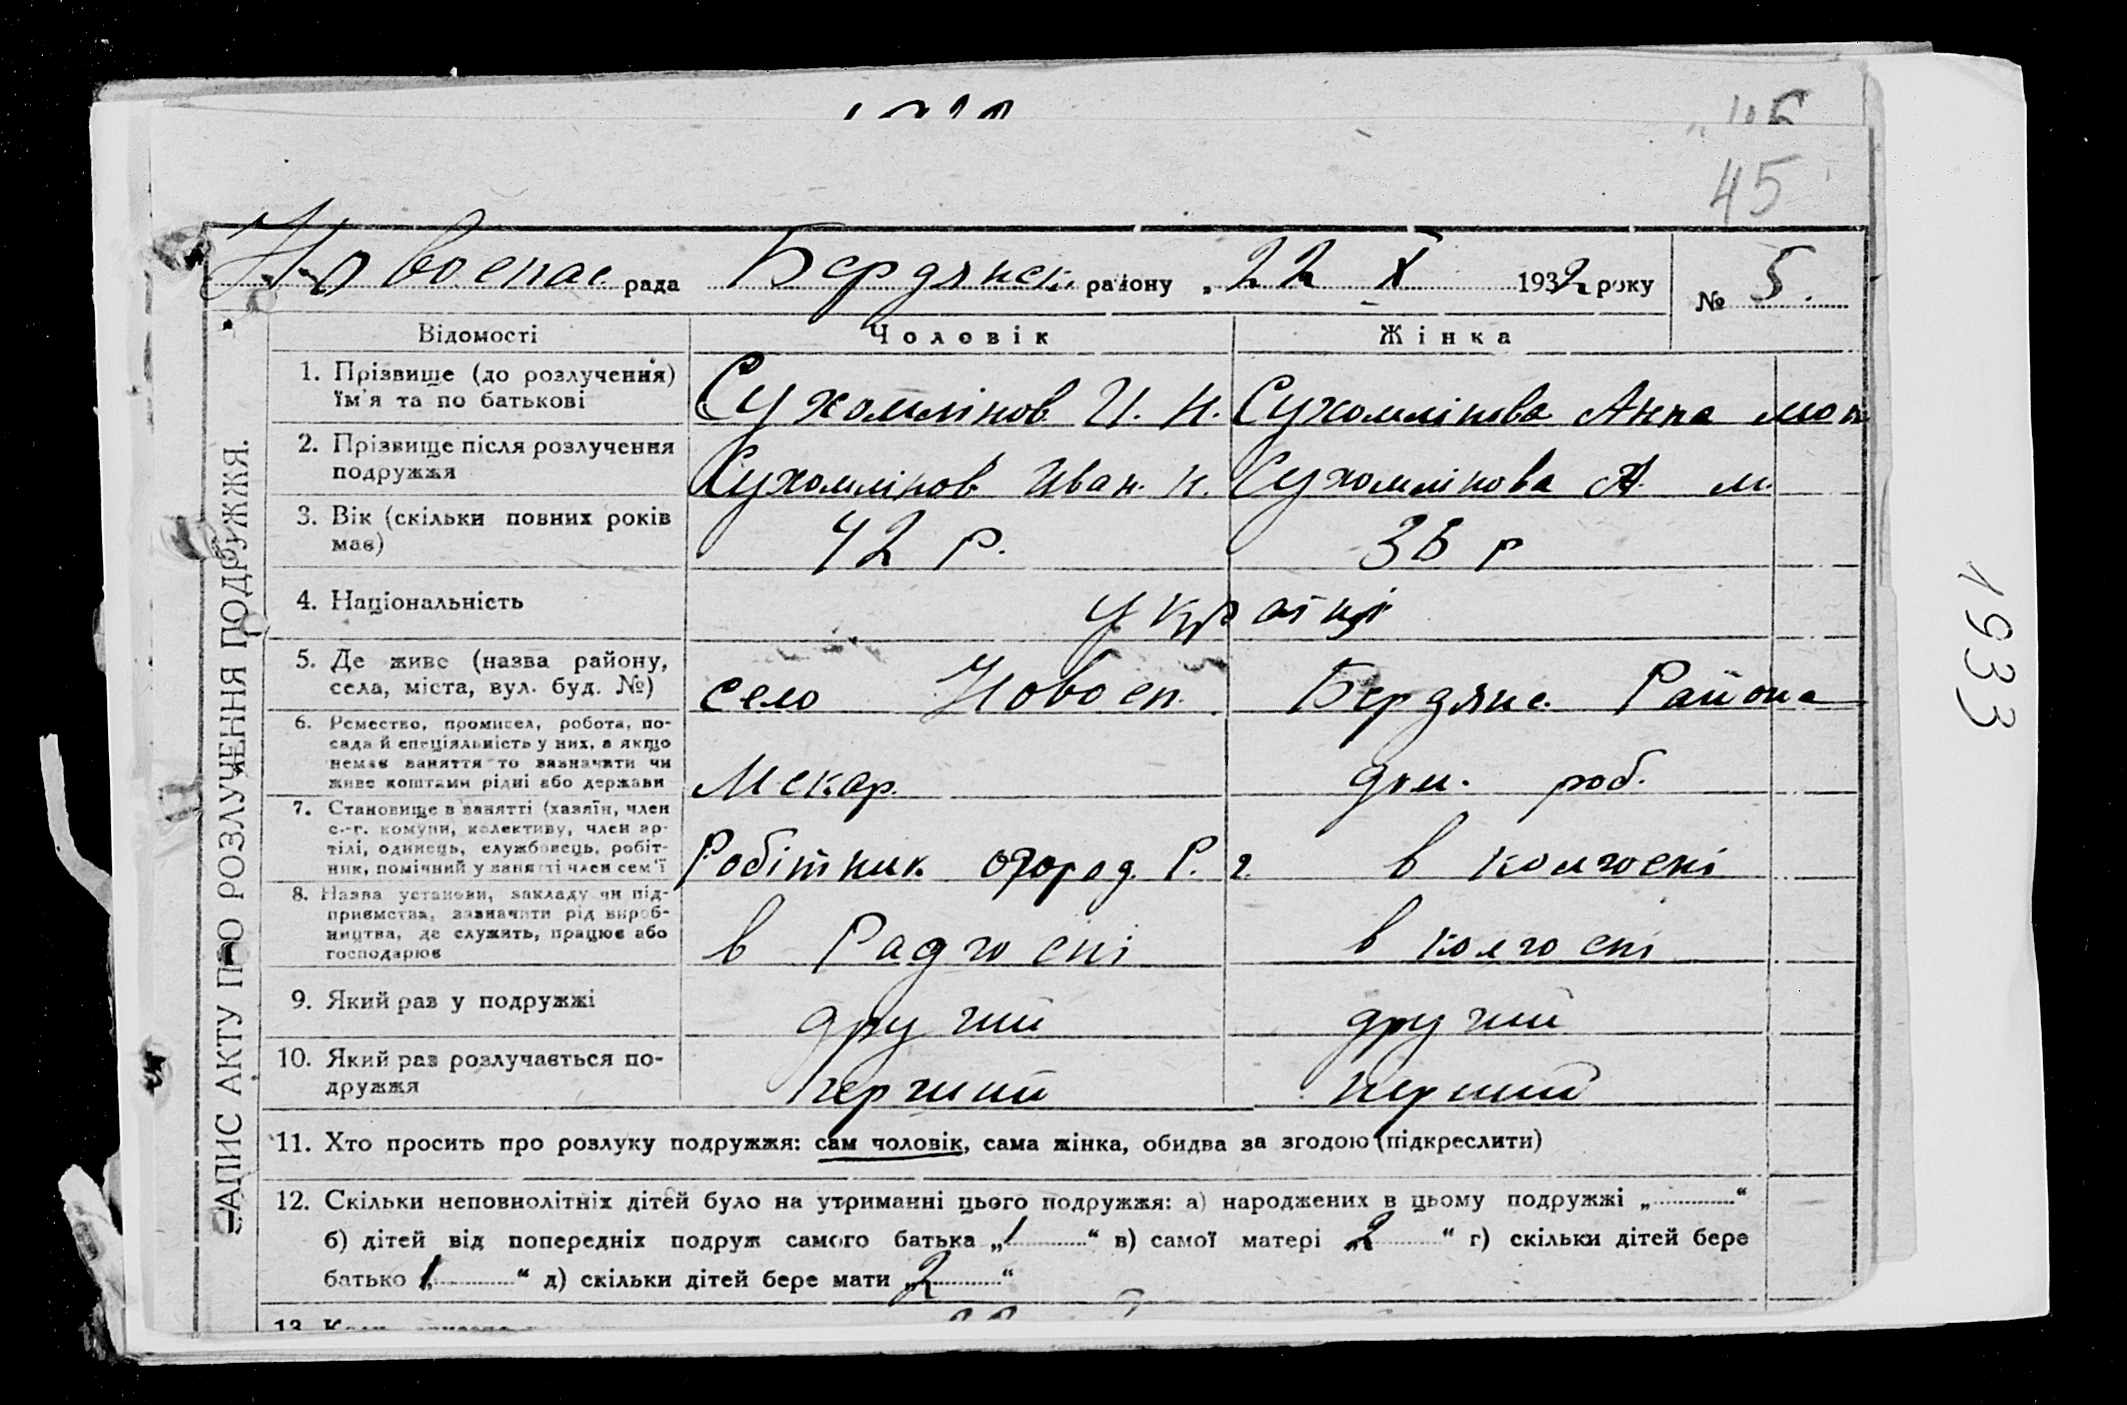 45
Новоспас. рада Бердянск. району „22 X 1932 року № 5.
ЗАПИС АКТУ ПРО РОЗЛУЧЕННЯ ПОДРУЖЖЯ.
Відомості Чоловік Жінка
1. Прізвище (до розлучення) їм'я та по батькові Сухомлінов И. Н. Сухомлінова Анна
2. Прізвище після розлучення подружжя Сухомлінов Иван. Н. Сухомлінова А. М.
3. Вік (скільки повних років має) 42 р. 36 р
4. Національність українці
5. Де живе (назва району, села, міста, вул. буд. №) село Новосп. Бердянс. Района
6. Ремество, промисел, робота, посада й спеціяльність у них, а якщо немає заняття то зазначити чи живе коштами рідні або держави дом. роб.
7. Становище в занятті (хазяїн, член с.-г. комуни, колективу, член артілі, одинець, службовець, робітник, помічний у занятті член сем'ї Робітник огород. Р. г. в колгоспі
8. Назва установи, закладу чи підприємства, зазначити рід виробництва, де служить, працює або господарює в Радгоспі в колгоспі
9. Який раз у подружжі другий другий
10. Який раз розлучається подружжя перший перший
11. Хто просить про розлуку подружжя: сам чоловік, сама жінка, обидва за згодою (підкреслити)
12. Скільки неповнолітніх дітей було на утриманні цього подружжя: а) народжених в цьому подружжі „..........“
б) дітей від попередніх подруж самого батька „1“ в) самої матері „2“ г) скільки дітей бере
батько „1“ д) скільки дітей бере мати „2“
13.
1933